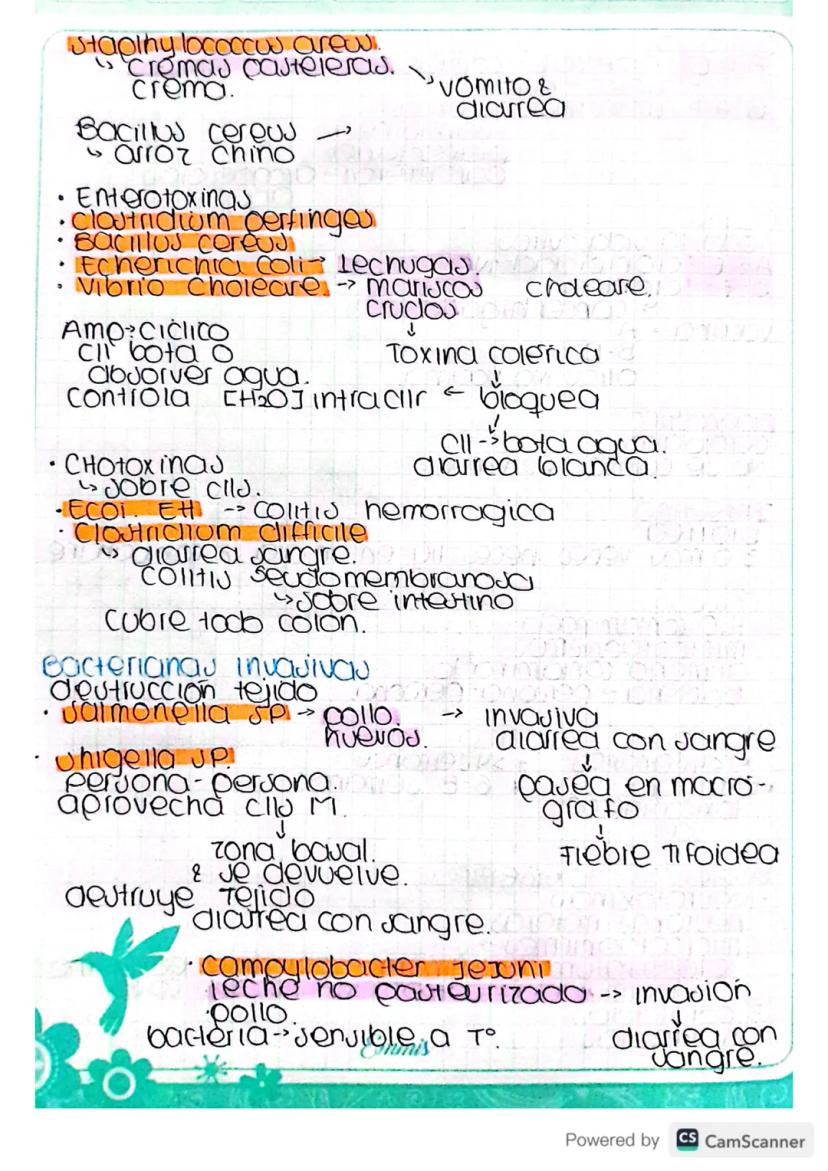 Staphylococcus areus.
↳ cremas pasteleras.
crema.
↘ vómito &
diarrea
Bacillus cereus →
↳ arroz chino
• Enterotoxinas
• Clostridium perfinges
• Bacillus cereus
• Echerichia Coli → Lechugas.
• Vibrio Choleare → mariscos choleare.
crudos
↓
Amp: ciclico
cll bota o
absorver agua.
controla [H2O] intracllr ← bloquea
Toxina colérica
↓
cll → bota agua.
diarrea blanca.
• CHotoxinas
↳ sobre clls.
• Ecoi EH → colitis hemorragica
• Clostridium difficile
↳ diarrea sangre.
colitis seudomembranosa
↳ sobre intestino
cubre todo colon.
Bacterianas invasivas
destrucción tejido
• Salmonella SP → pollo. → invasiva
huevos. diarrea con sangre
↓
pasea en macró-
grafo
↓
Fiebre Tifoidea
• Shigella SP
persona-persona
aprovecha clls M.
↓
zona basal.
& se devuelve.
destruye Tejido
diarrea con sangre.
• Campylobacter Jejuni
Leche no pasteurizado → invasión
pollo. ↓
bacteria → sensible a T°. diarrea con
sangre.
Emmis
Powered by CS CamScanner